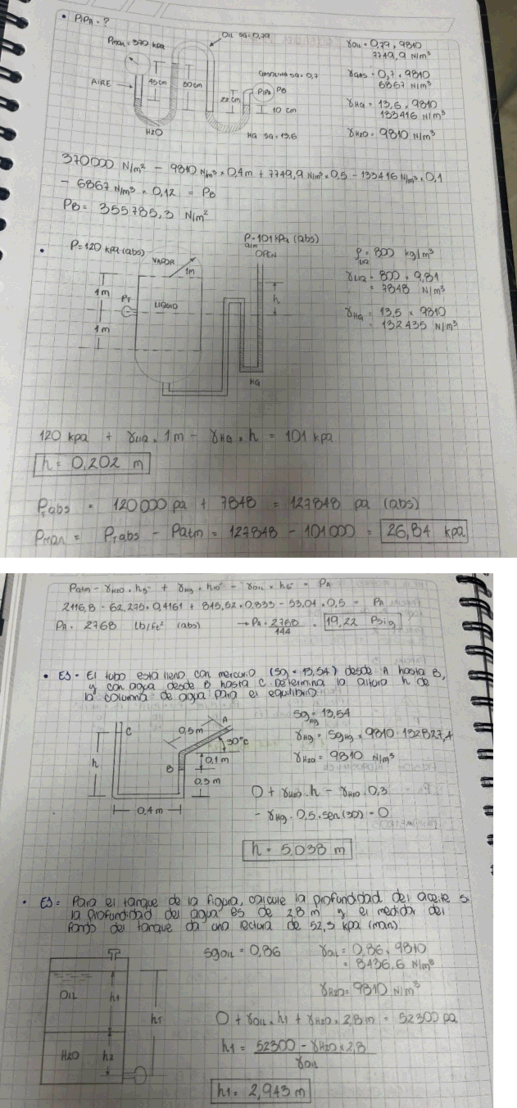 • PiPA = ?
Pman = 370 kpa
Oil sg = 0,79
γoil = 0,79 . 9810
7749,9 N/m³
AIRE
40cm
50cm
sg = 0,7
γ = 0,7 . 9810
6867 N/m³
PiPA PB
10 cm
γHg = 13,6 . 9810
133416 N/m³
H2O
Hg sg = 13,6
γH2O = 9810 N/m³
370000 N/m² - 9810 N/m³ . 0,4m + 7749,9 N/m³ . 0,5 - 133416 N/m³ . 0,1
- 6867 N/m³ . 0,12 = PB
PB = 355785,3 N/m²
• P = 120 kpa (abs)
P = 101 kPa (abs)
atm
OPEN
VAPOR
1m
ρLiq = 800 kg/m³
1m
P1
LIQUIDO
h
γLiq = 800 . 9,81
= 7848 N/m³
1m
γHg = 13,5 . 9810
= 132435 N/m³
Hg
120 kpa + γLiq . 1m - γHg . h = 101 kpa
h = 0,202 m
P1abs = 120000 pa + 7848 = 127848 pa (abs)
Pman = P1abs - Patm = 127848 - 101000 = 26,84 kpa
Patm - γH2O . h5 + γHg . h - γoil . h = PA
2116,8 - 62,275 . 0,4161 + 845,52 . 0,833 - 53,04 . 0,5 = PA
PA = 2768 Lb/Ft² (abs) → PA = 2768/144 = 19,22 Psig
• EJ = El tubo esta lleno con mercurio (sg = 13,54) desde A hasta B,
y con agua desde B hasta C. Determina la altura h de
la columna de agua para el equilibrio
C
A
0,5m
30°C
sg = 13,54
Hg
γHg = sgHg × 9810 = 132827,4
h
B
0,1m
0,3m
γH2O = 9810 N/m³
0,4m
0 + γH2O . h - γH2O . 0,3
- γHg . 0,5 . sen(30) = 0
h = 5,038 m
• EJ = Para el tanque de la figura, calcule la profundidad del aceite si
la profundidad del agua es de 2,8 m y el medidor del
fondo del tanque da una lectura de 52,3 kpa (man)
sgoil = 0,86
γoil = 0,86 . 9810
= 8436,6 N/m³
OIL
h1
hT
γH2O = 9810 N/m³
H2O
h2
0 + γoil . h1 + γH2O . 2,8m = 52300 pa
h1 = 52300 - γH2O × 2,8
γoil
h1 = 2,943 m